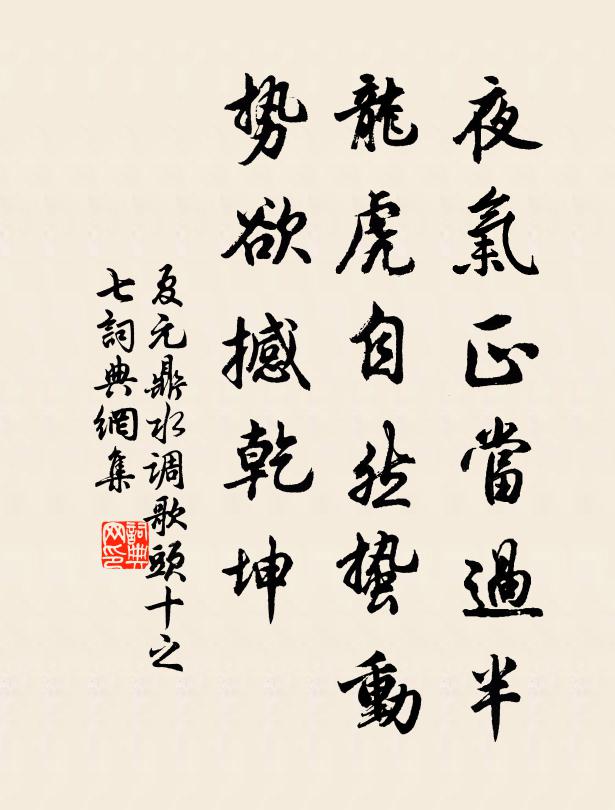 夜氣正當過半
龍虎自然蟄動
势欲撼乾坤
夏元鼎水调歌頭十之
七詞典網集
詞典网印